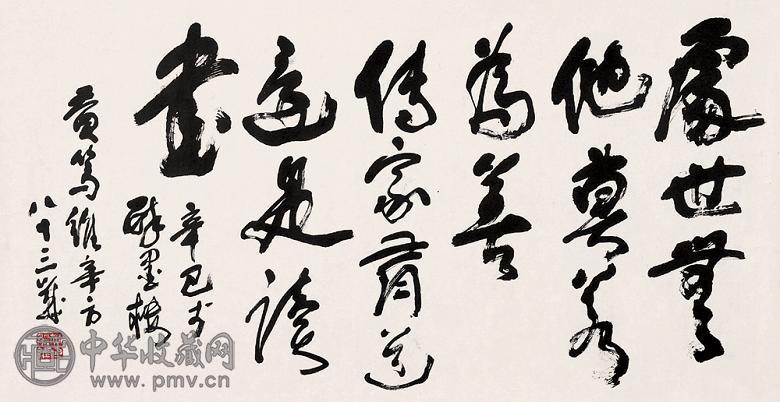 處世無
他莫若
為善
傳家有道
還是讀
書
辛巳於
醉墨樓
黃篤維年方
八十三歲
中华收藏网
www.pmv.cn